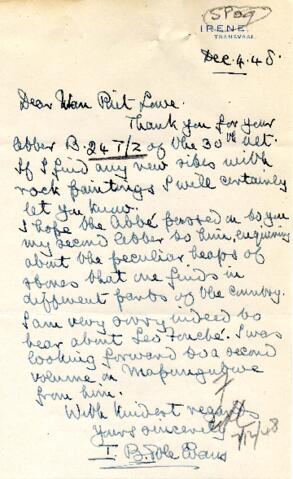 SPO9
IRENE,
TRANSVAAL.
Dec. 4. 48.
Dear Van Riet Lowe.
Thank you for your
letter B. 24 T/2 of the 30th ult.
If I find any new sites with
rock paintings I will certainly
let you know.
I hope the Abbé passed on to you
my second letter to him, enquiring
about the peculiar heaps of
stones that one finds in
different parts of the country.
I am very sorry indeed to
hear about Leo Fouché. I was
looking forward to a second
volume on Mapungubwe
from him.
With kindest regards
Yours sincerely
I. B. Pole Evans
7/12/48